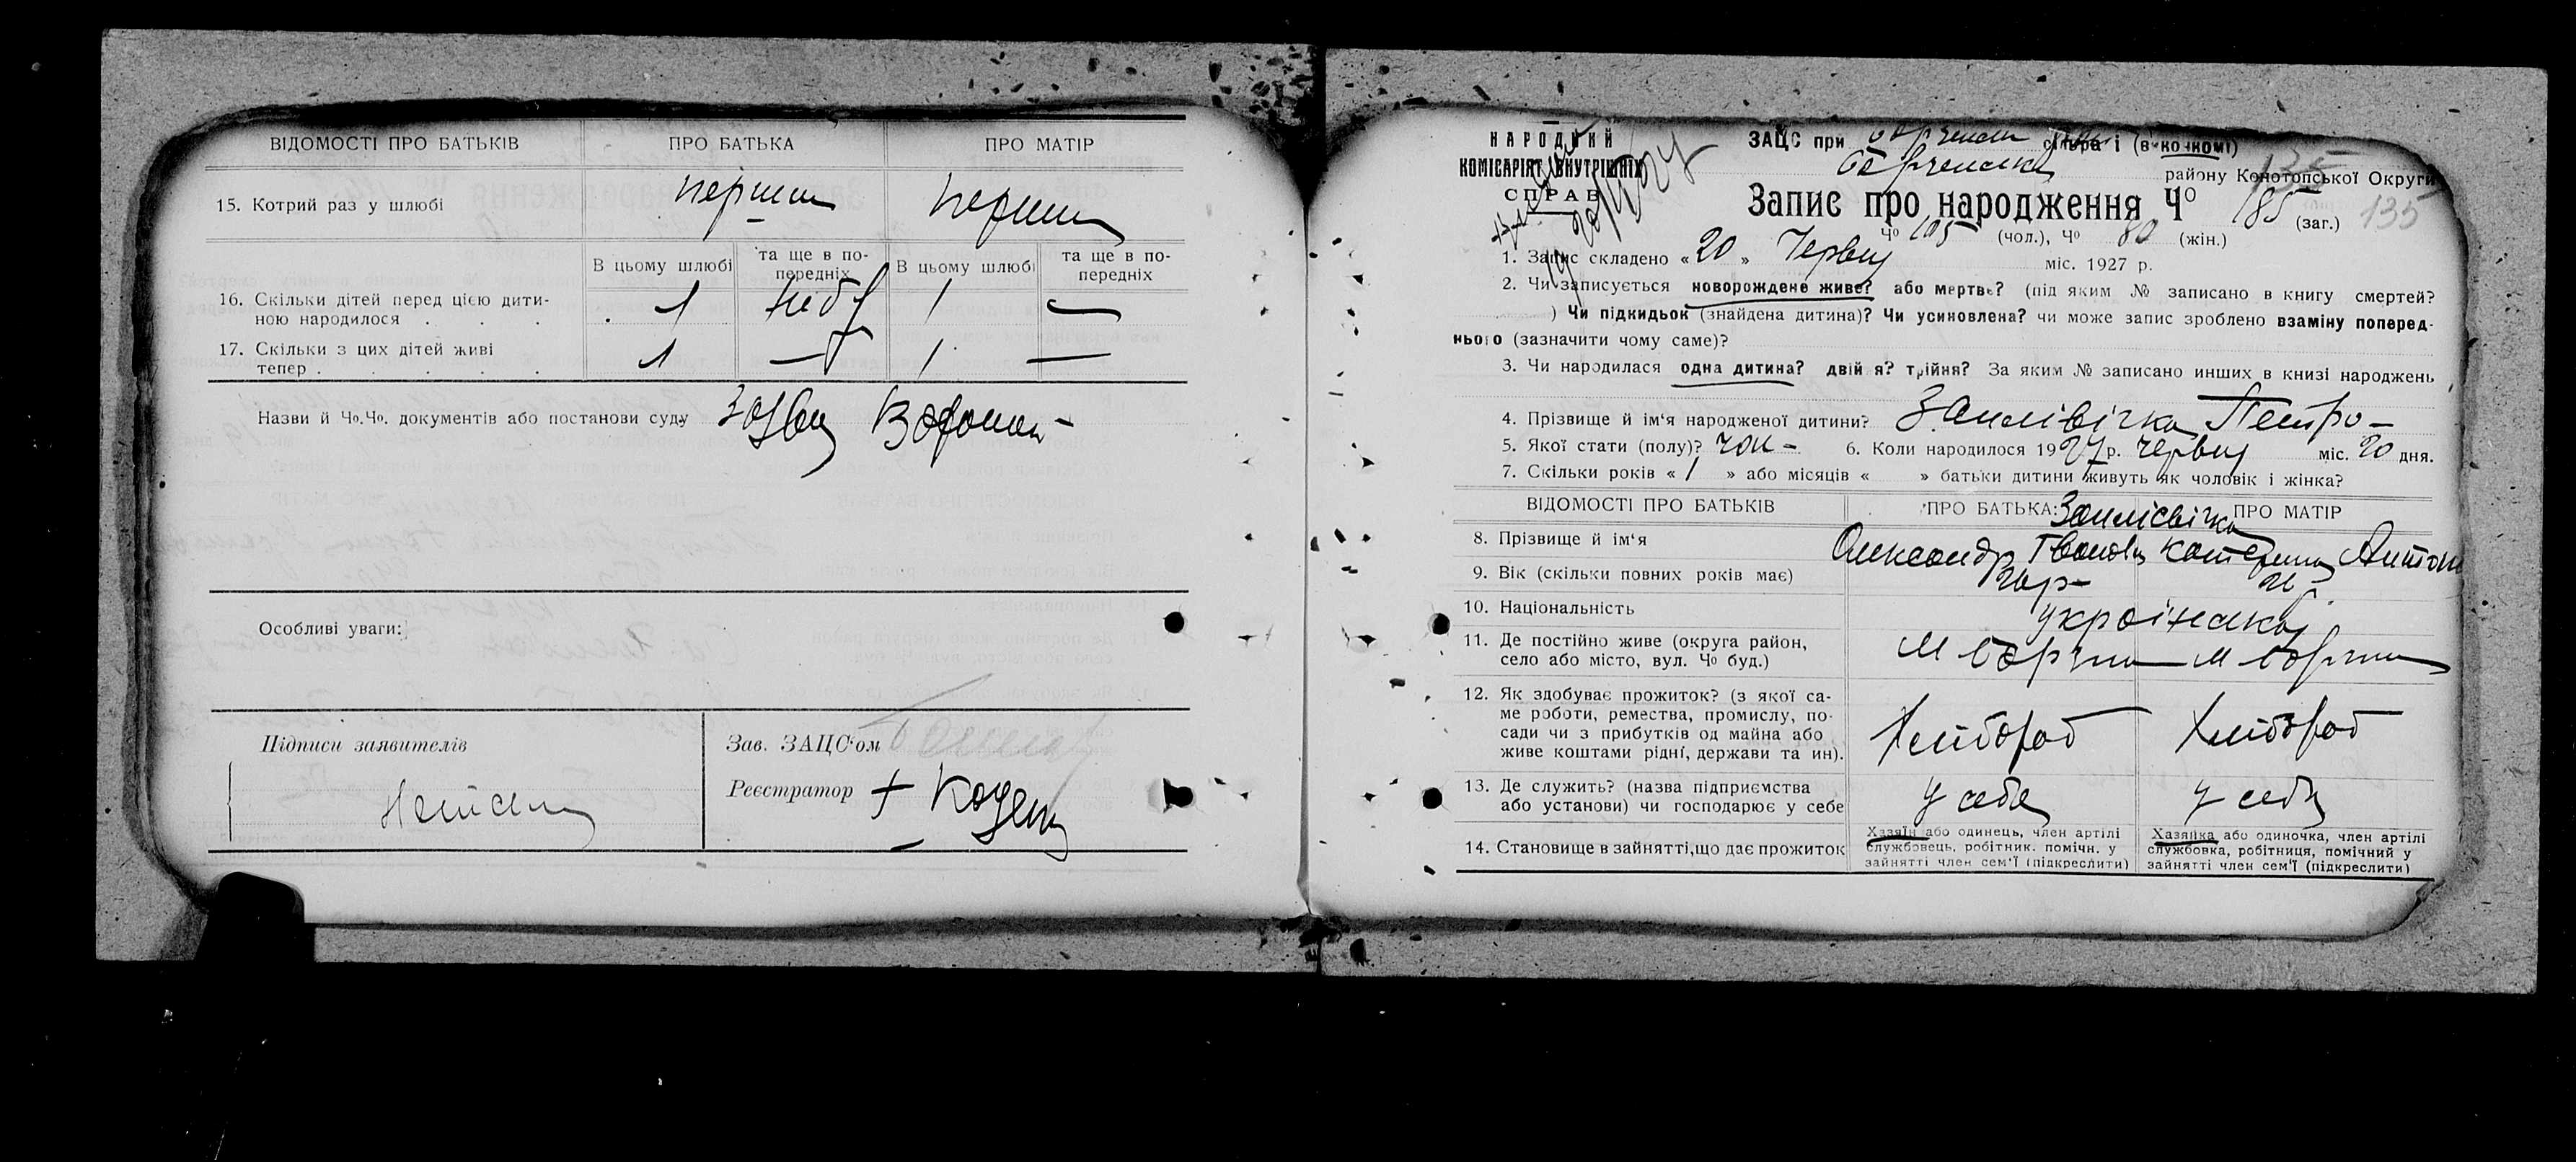 ВІДОМОСТІ ПРО БАТЬКІВ ПРО БАТЬКА ПРО МАТІР
15. Котрий раз у шлюбі перший перший
В цьому шлюбі та ще в по-передніх В цьому шлюбі та ще в по-передніх
16. Скільки дітей перед цією дити-
ною народилося . . . 1 1 —
17. Скільки з цих дітей живі
тепер . . . . . 1 — 1 —
Назви й Чо.Чо. документів або постанови суду
Особливі уваги:
Підписи заявителів
Зав. ЗАЦС'ом
Реєстратор +
НАРОДНИЙ
КОМІСАРІЯТ ВНУТРІШНІХ
СПРАВ
ЗАЦС при сільраді (виконкомі)
району Конотопської Округи
135
Запис про народження Чо 185 (заг.) 135
Чо 105 (чол.), Чо 80 (жін.)
1. Запис складено « 20 » Червня міс. 1927 р.
2. Чи записується новорождене живе? або мертве? (під яким № записано в книгу смертей?
) Чи підкидьок (знайдена дитина)? Чи усиновлена? чи може запис зроблено взаміну поперед-
нього (зазначити чому саме)?
3. Чи народилася одна дитина? двійня? трійня? За яким № записано инших в книзі народжень
4. Прізвище й ім'я народженої дитини? Петро
5. Якої стати (полу)? чол - 6. Коли народилося 1927 р. червня міс. 20 дня.
7. Скільки років « 1 » або місяців « » батьки дитини живуть як чоловік і жінка?
ВІДОМОСТІ ПРО БАТЬКІВ ПРО БАТЬКА: ПРО МАТІР
8. Прізвище й ім'я Олександр Іванов Катерина Антон
9. Вік (скільки повних років має)
10. Національність українка
11. Де постійно живе (округа район,
село або місто, вул. Чо буд.) м Борзна м Борзна
12. Як здобуває прожиток? (з якої са-
ме роботи, ремества, промислу, по-
сади чи з прибутків од майна або
живе коштами рідні, держави та ин). Хлібороб Хлібороб
13. Де служить? (назва підприємства
або установи) чи господарює у себе у себе у себе
14. Становище в зайнятті, що дає прожиток
Хазяїн або одинець, член артілі
службовець, робітник. помічн. у
зайнятті член сем'ї (підкреслити)
Хазяйка або одиночка, член артілі
службовка, робітниця, помічний у
зайнятті член сем'ї (підкреслити)